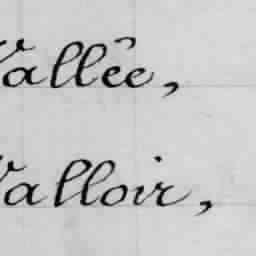 Vallée,
Valloir,